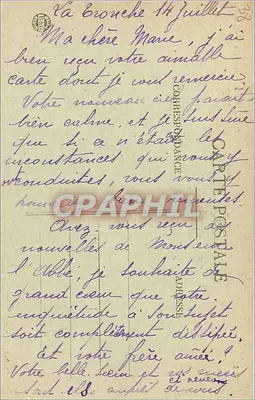 La Tronche 14 Juillet
Ma chère Marie, j'ai
bien reçu votre aimable
carte dont je vous remercie
Votre nouveau ciel paraît
bien calme, et je suis sûre
que si ce n'était les
circonstances qui vous y
conduites, vous vous y
heureuses
Avez-vous reçu des
nouvelles de Monsieur
l'Abbé, je souhaite de
grand cœur que votre
inquiétude à son sujet
soit complètement dissipée.
Et votre frère aimé?
Votre belle sœur et vos nièces
et neveu
sont ils auprès de vous
CORRESPONDANCE
CARTE POSTALE
ADRESSE
CPAPHIL